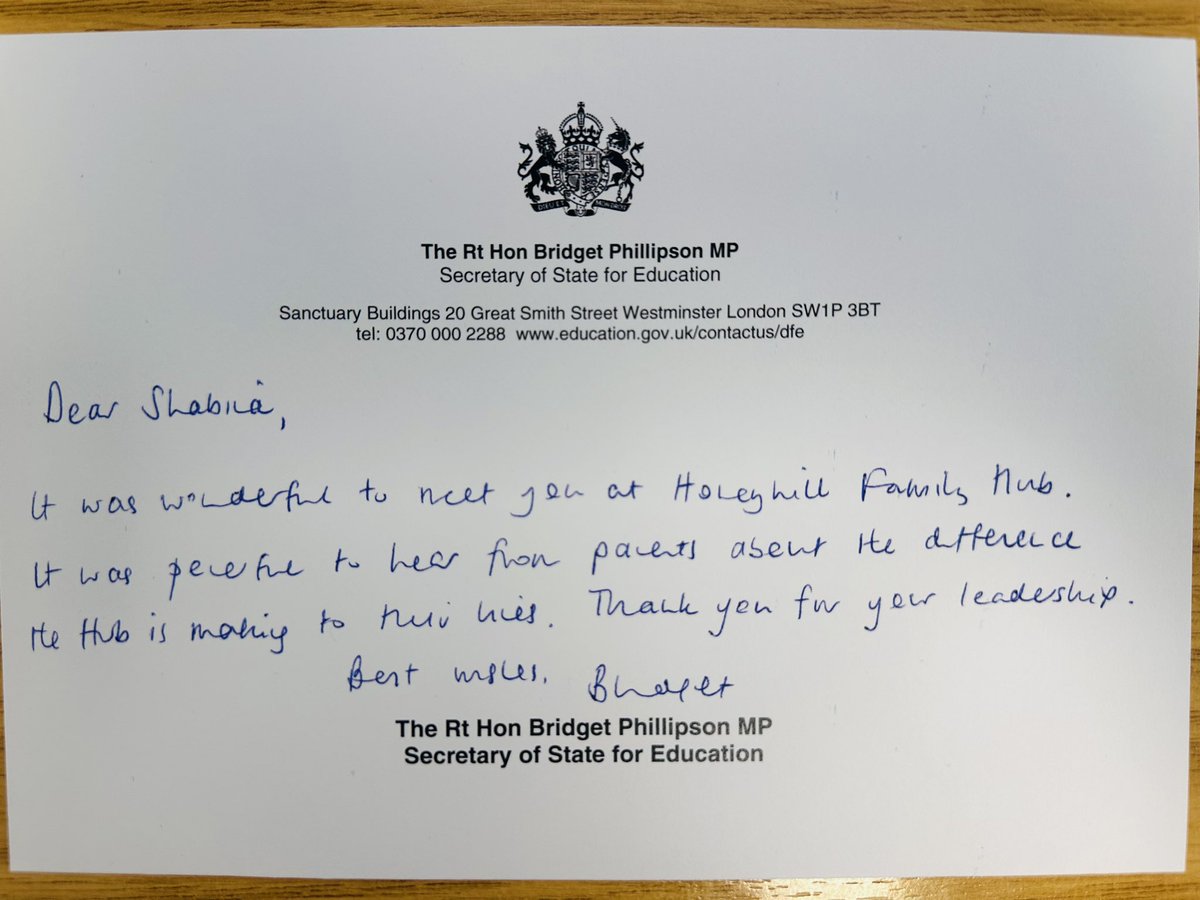 HONI SOIT QUI MAL Y PENSE
DIEU ET MON DROIT
The Rt Hon Bridget Phillipson MP
Secretary of State for Education
Sanctuary Buildings 20 Great Smith Street Westminster London SW1P 3BT
tel: 0370 000 2288 www.education.gov.uk/contactus/dfe
Dear Shabina,
It was wonderful to meet you at Honeyhill Family Hub.
It was powerful to hear from parents about the difference
the Hub is making to their lives. Thank you for your leadership.
Best wishes, Bridget
The Rt Hon Bridget Phillipson MP
Secretary of State for Education